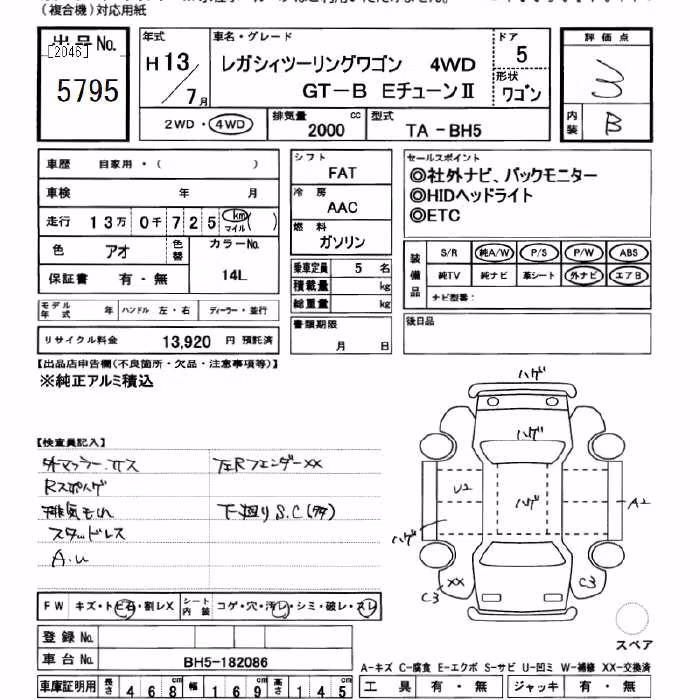 (複合機)対応用紙
出品No.
[2046]
5795
年式
H13/7月
車名・グレード
レガシィツーリングワゴン 4WD
GT-B EチューンⅡ
ドア
5
形状
ワゴン
評価点
3
内装
B
2WD・4WD
排気量
2000
cc
型式
TA-BH5
車歴 自家用・( )
車検 年 月
走行 13万 0千 725 km マイル ( )
色 アオ 色替
カラーNo.
14L
保証書 有・無
モデル年式 年 ハンドル 左・右 ディーラー・並行
リサイクル料金 13,920 円 預託済
シフト
FAT
冷房
AAC
燃料
ガソリン
乗車定員 5 名
積載量 kg
総重量 kg
書類期限
月 日
セールスポイント
◎社外ナビ、バックモニター
◎HIDヘッドライト
◎ETC
装備品
S/R 純A/W P/S P/W ABS
純TV 純ナビ 革シート 外ナビ エアB
ナビ型番:
後日品
【出品店申告欄(不良箇所・欠品・注意事項等)】
※純正アルミ積込
【検査員記入】
外マフラー
左Rフェンダーxx
Rスポハゲ
排気もれ
下廻りS.C(多)
スタッドレス
A.u
ハゲ
ハゲ
U2
ハゲ
A2
ハゲ
xx
C3
C3
スペア
FW キズ・トビ石・割レX
シート内装 コゲ・穴・汚レ・シミ・破レ・スレ
登録No.
車台No. BH5-182086
車庫証明用 長さ 468 cm 幅 169 cm 高さ 145 cm
A-キズ C-腐食 E-エクボ S-サビ U-凹ミ W-補修 XX-交換済
工具 有・無 ジャッキ 有・無